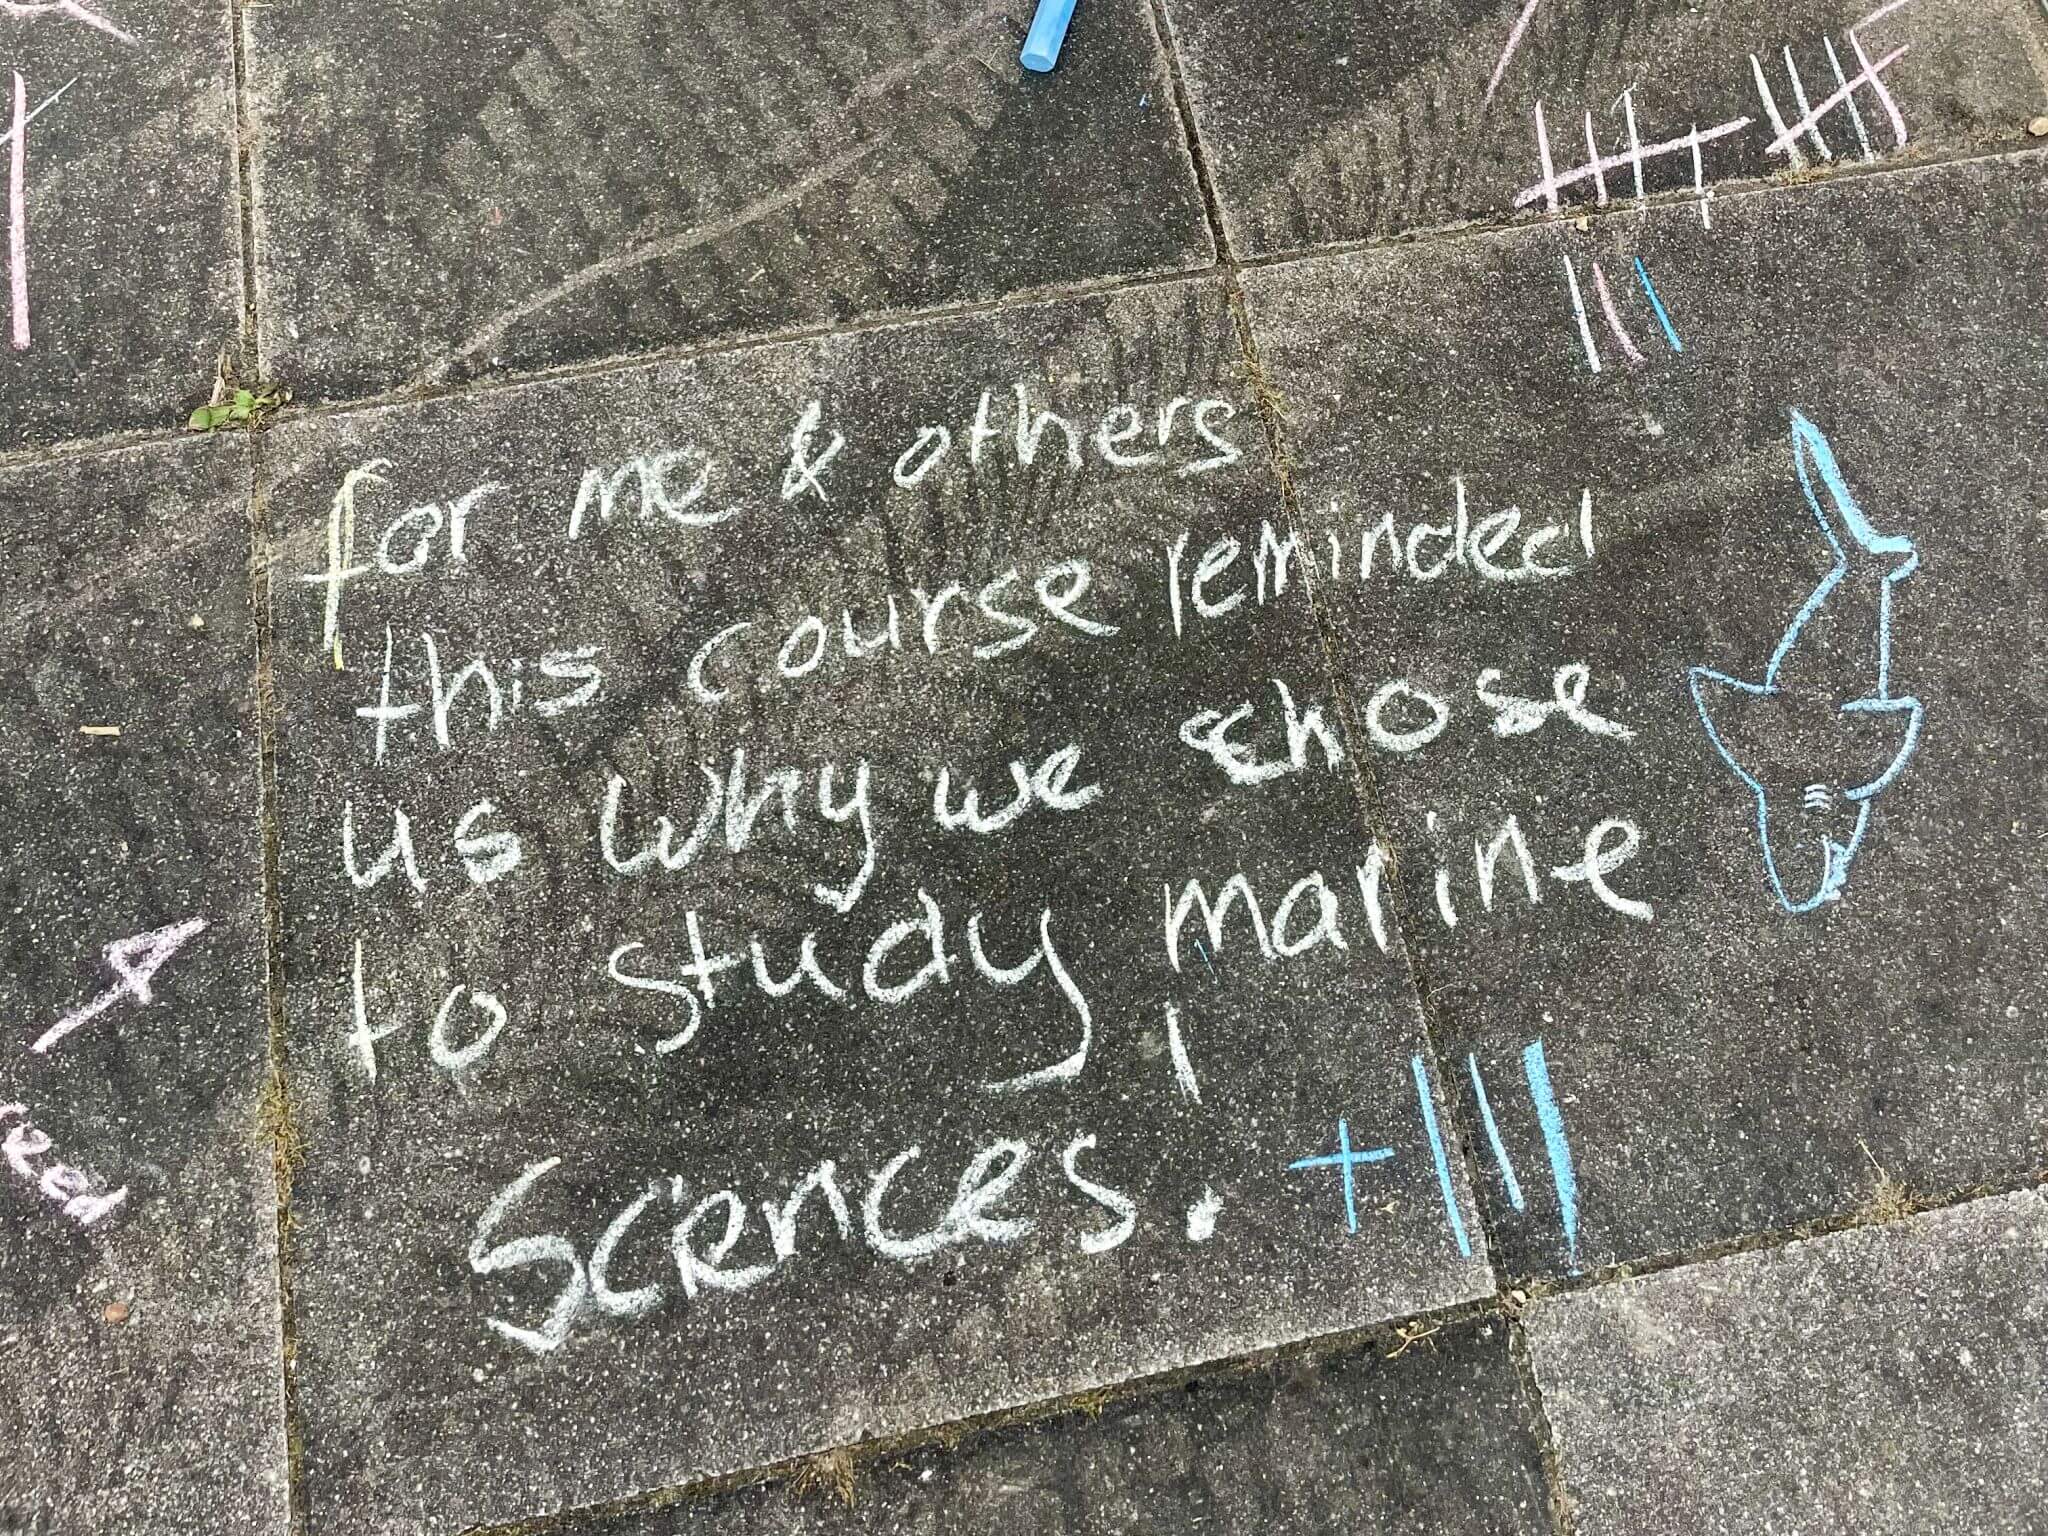 for me & others
this course reminded
us why we chose
to study marine
Sciences. +III